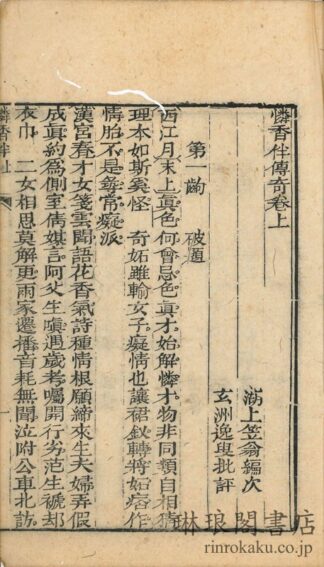 憐香伴傳奇卷上
湖上笠翁編次
玄洲逸叟批評
第一齣 破題
西江月末上眞色何曾忌色眞才始解憐才物非同類自相猜
理本如斯奚怪 奇妬雖輸女子癡情也讓裙釵轉將妬痞作
情胎不是尋常癡派
漢宮春才女箋雲聞語花香氣詩種情根願締來生夫婦弄假
成眞約爲側室倩媒言阿父生嗔遇歲考囑開行劣范生褫却
衣巾 二女相思莫解更兩家遷播音耗無聞泣附公車北訪
憐香伴上 一
琳琅閣書店
rinrokaku.co.jp